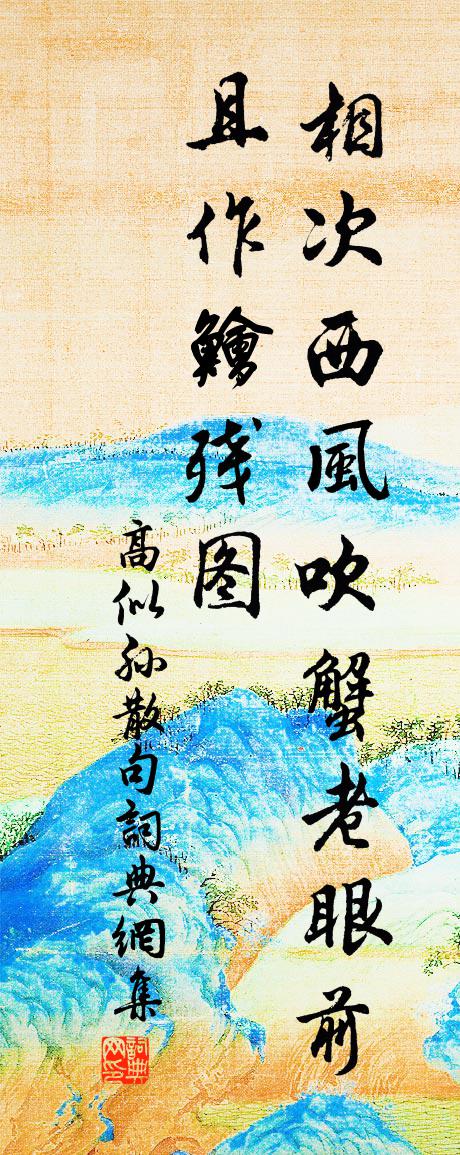 相次西風吹蟹老眼前
且作鱠残图
高似孙散句詞典網集
詞典网印